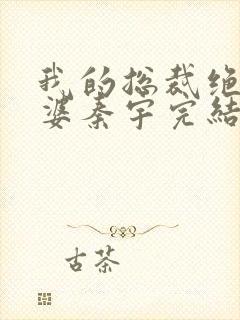 我的总裁绝
婆秦宇完结
古茶